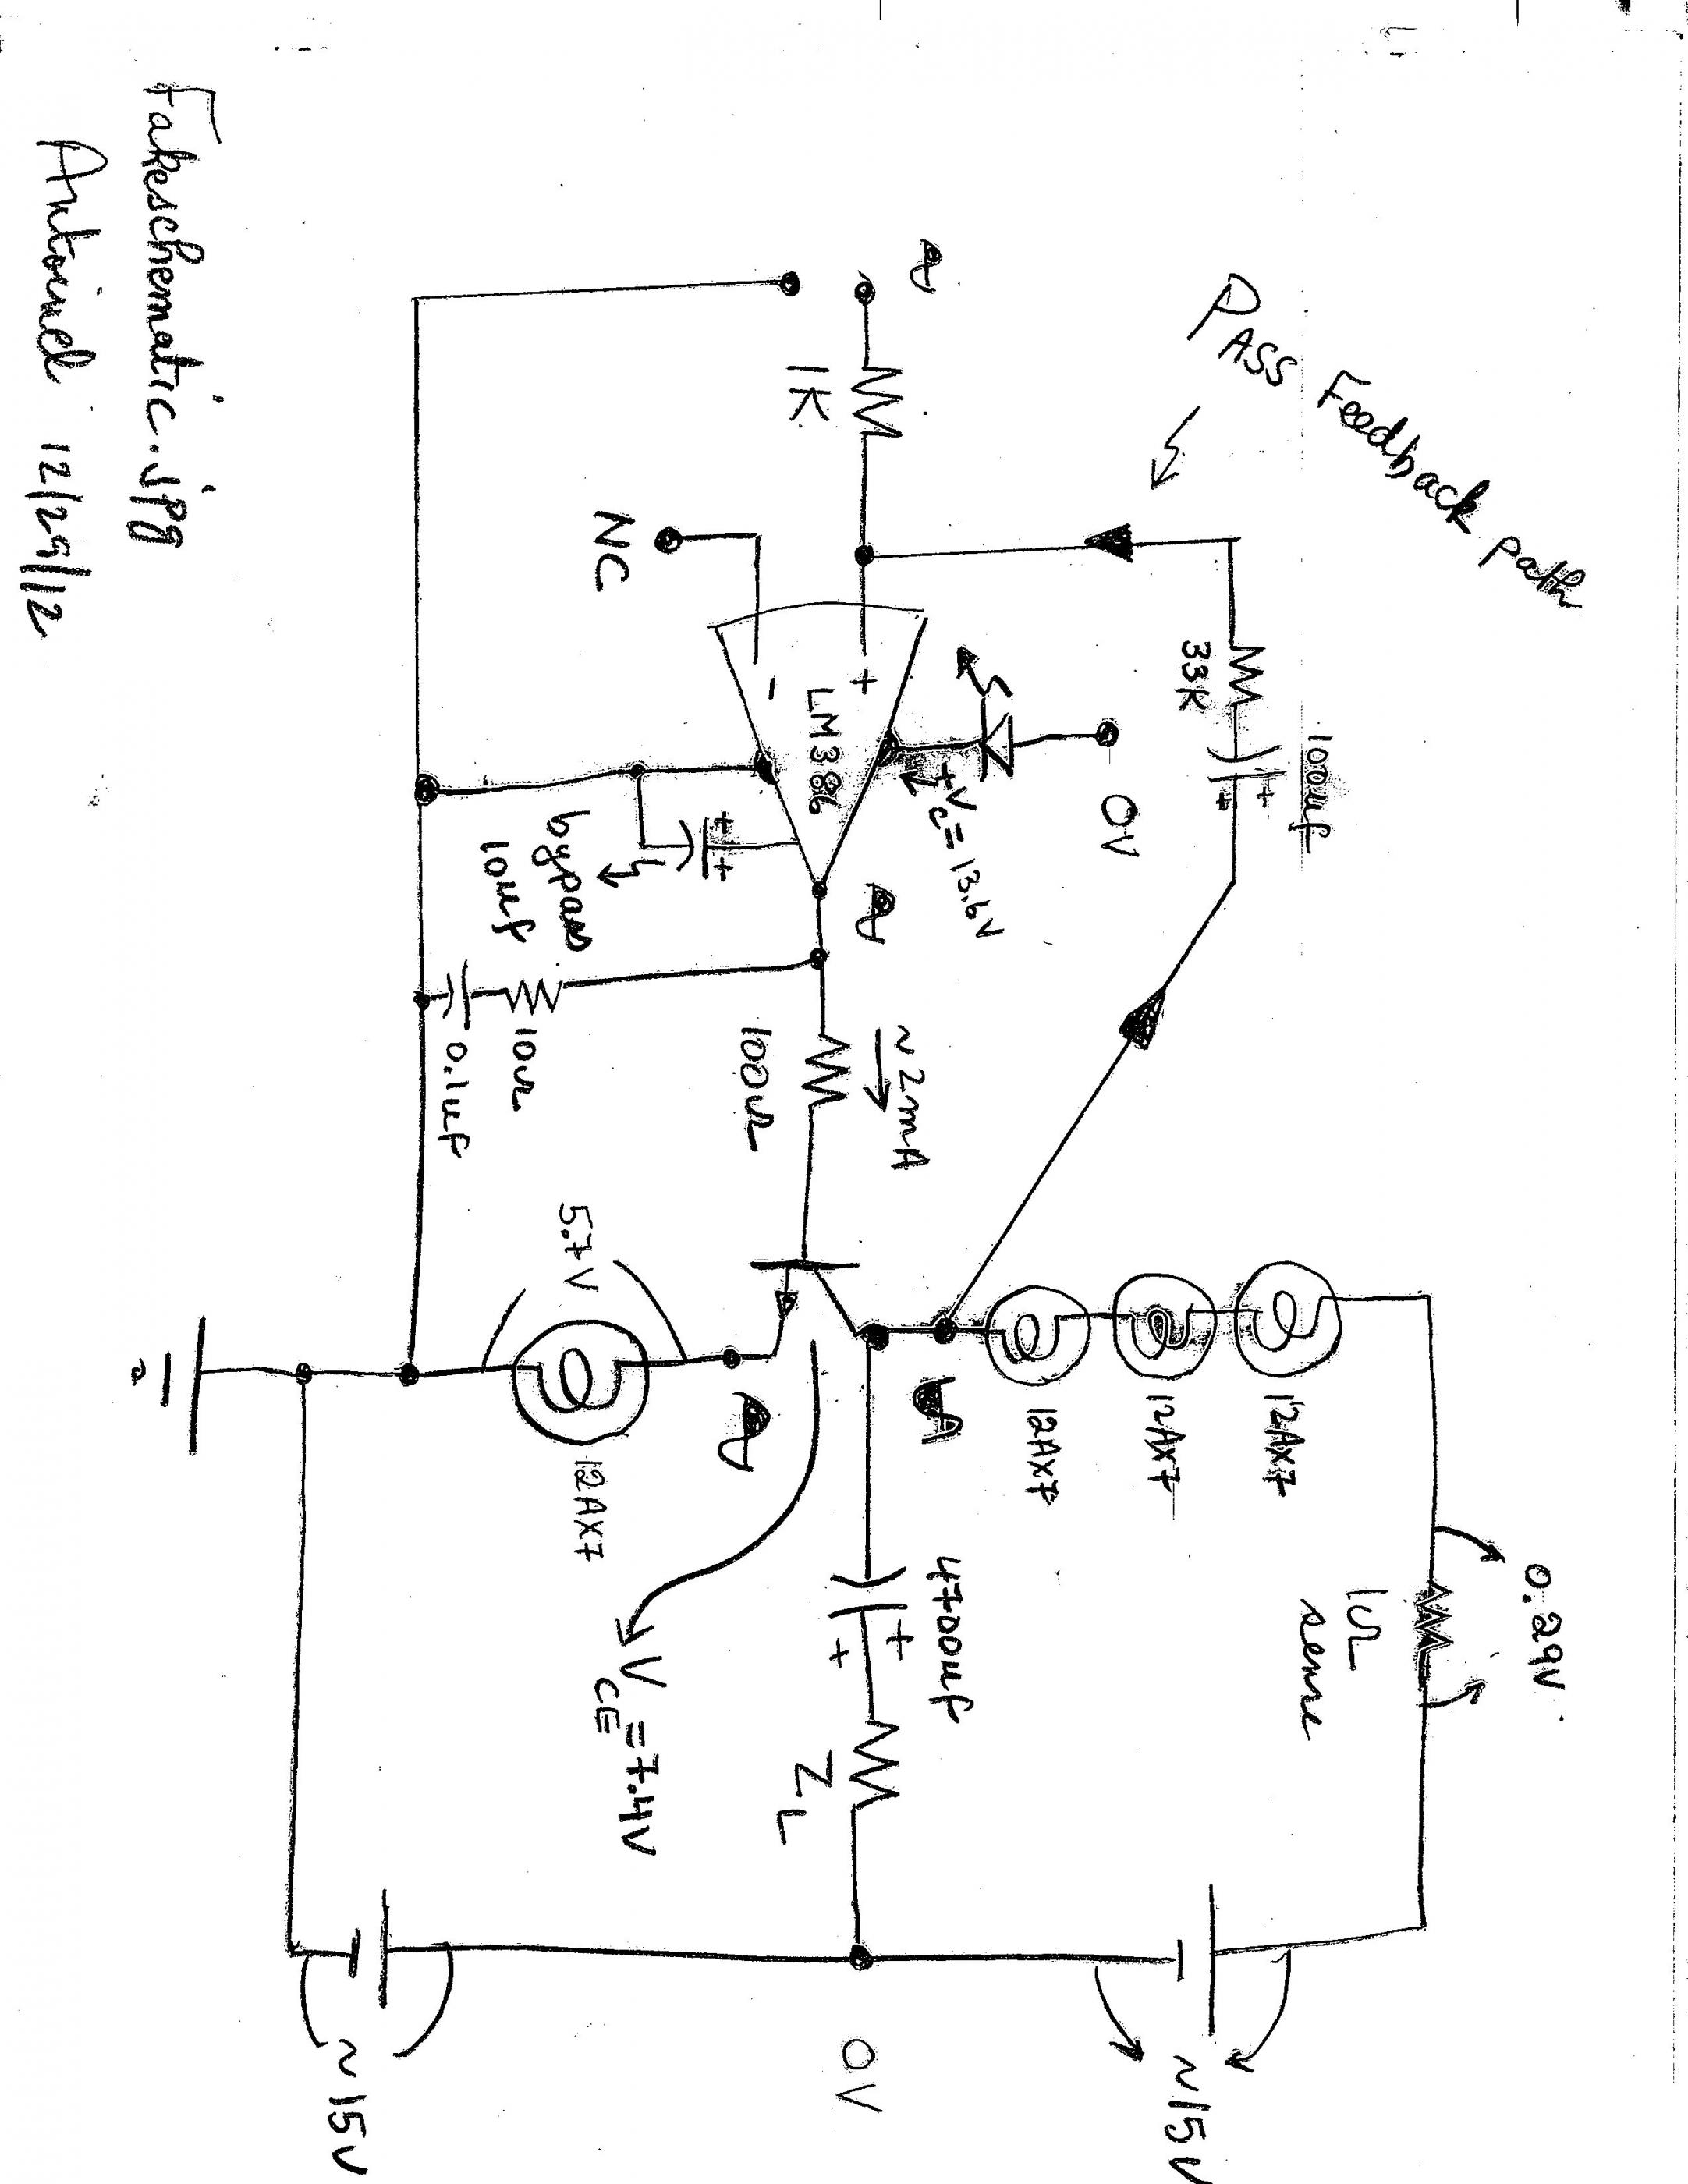 PASS Feedback path
100uf
33K
0V
+Vc = 13.6V
1K
NC
+
-
LM386
bypass
10uf
~2mA
100Ω
10Ω
0.1uf
12AX7
12AX7
12AX7
0.29V
1Ω
sense
4700uf
ZL
VCE = 7.4V
5.7V
12AX7
~15V
0V
~15V
Fakeschematic.jpg
Antoinel 12/29/12